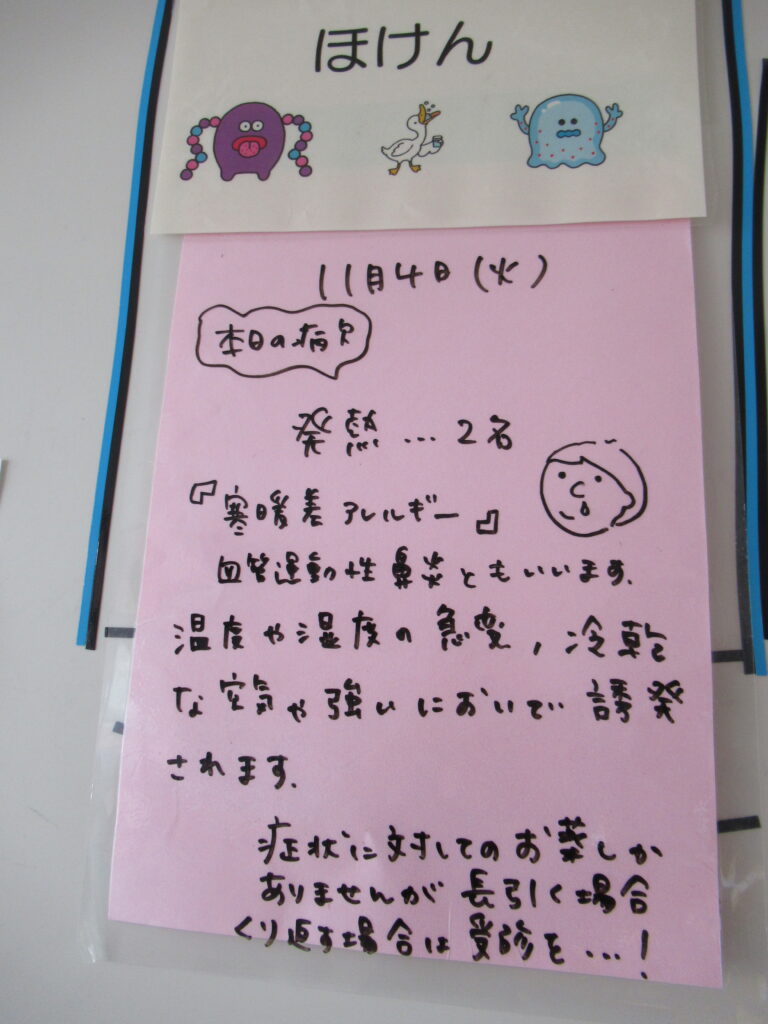 ほけん
11月4日(火)
本日の病欠
発熱…2名
『寒暖差アレルギー』
血管運動性鼻炎ともいいます.
温度や湿度の急変,冷乾
な空気や強いにおいで誘発
されます.
症状に対してのお薬しか
ありませんが長引く場合
くり返す場合は受診を…!